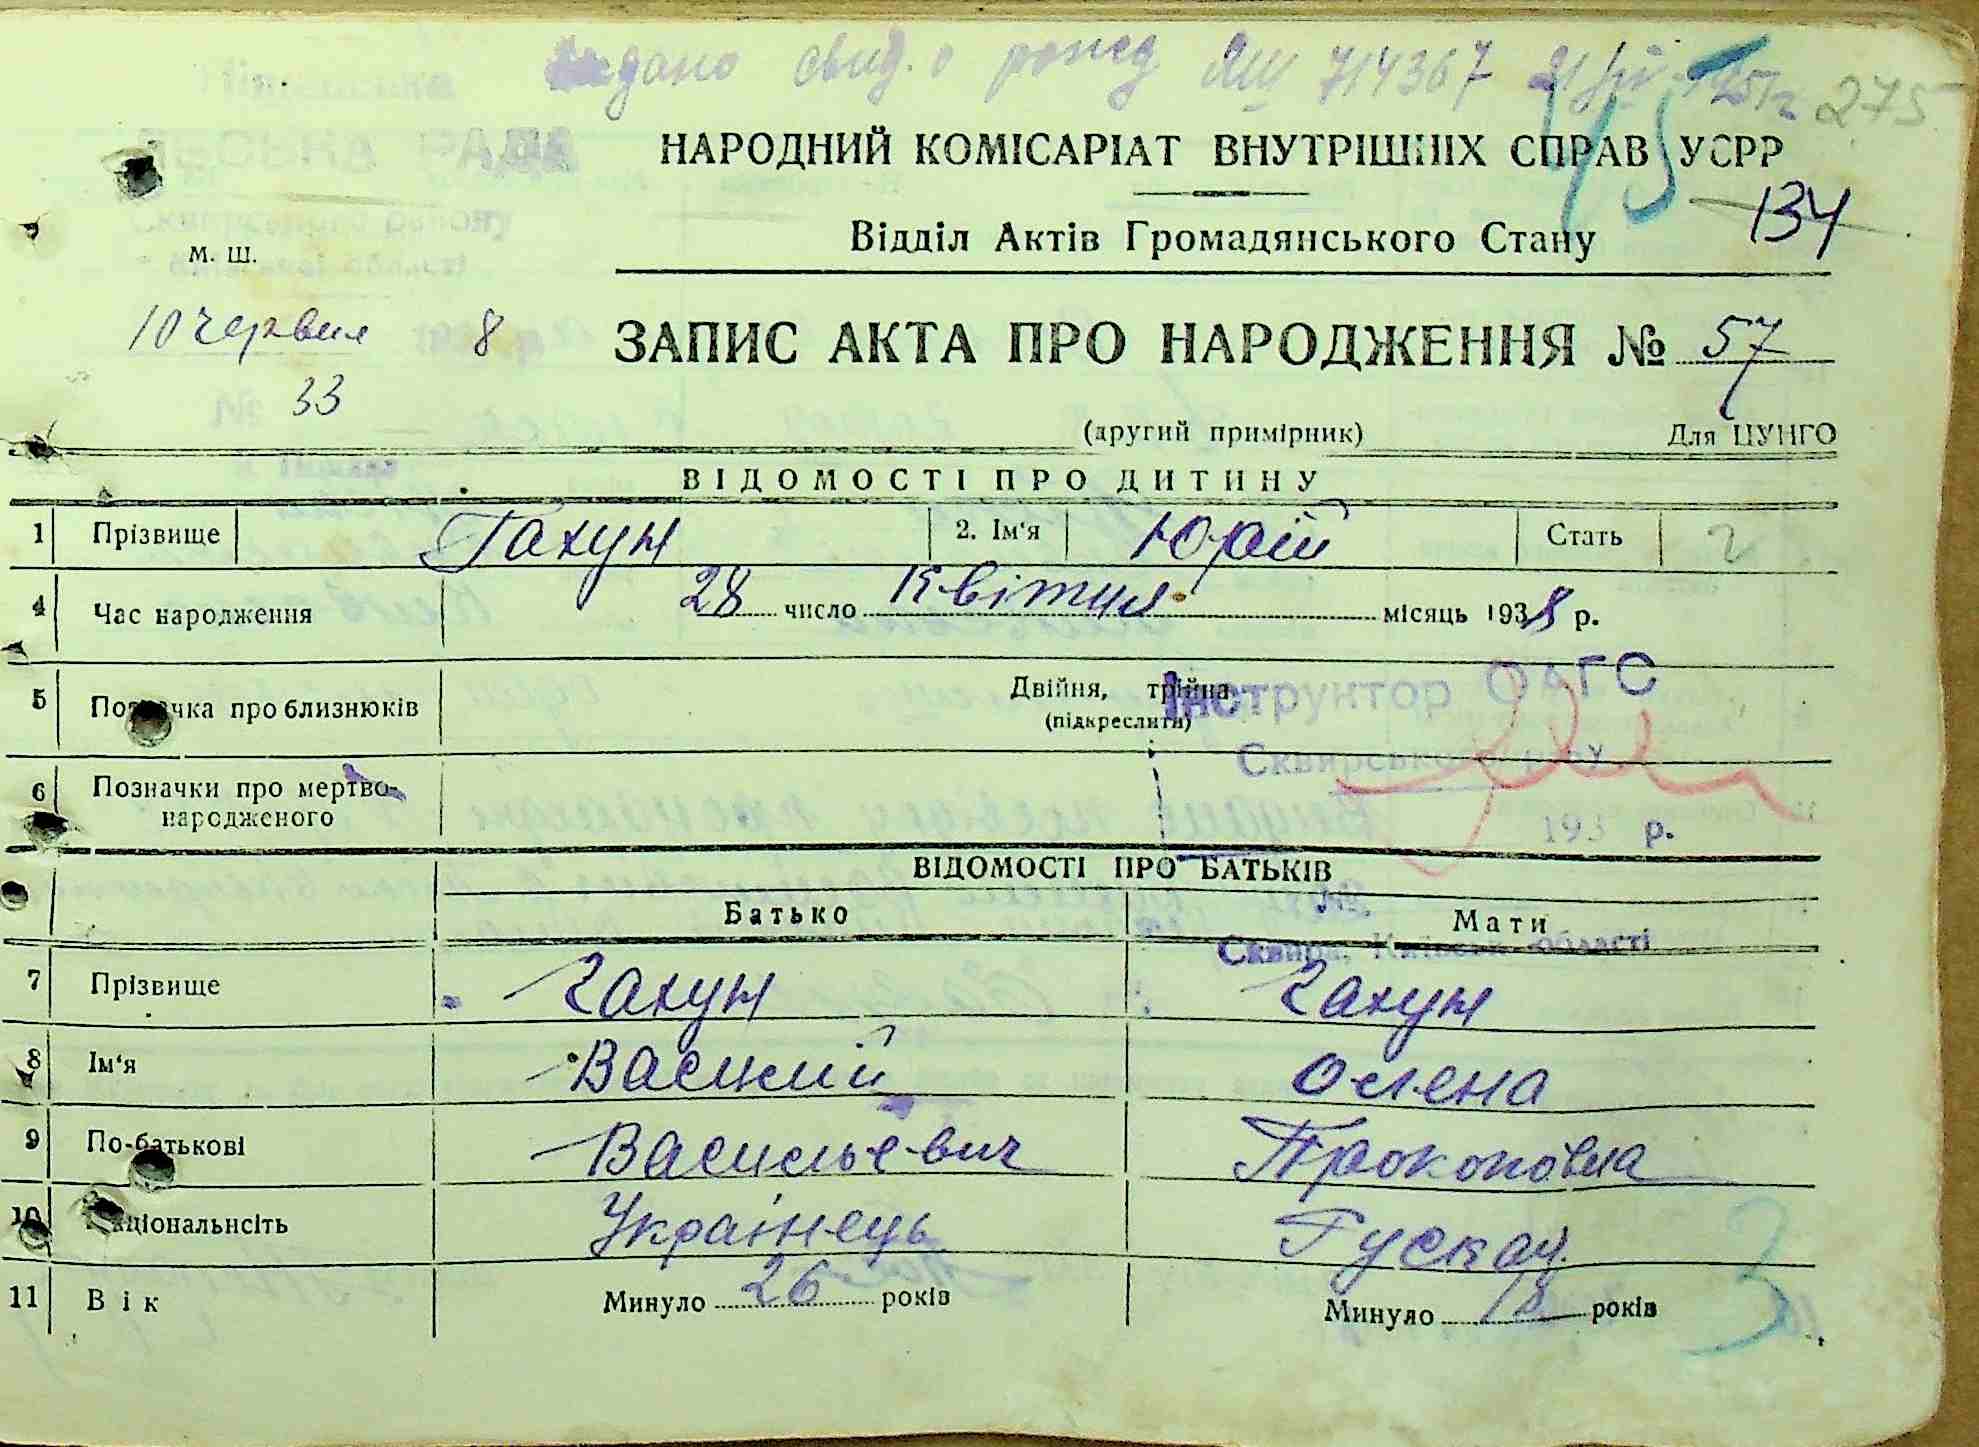 видано свид. о рожд ЯШ 714367
275
НАРОДНИЙ КОМІСАРІАТ ВНУТРІШНІХ СПРАВ УСРР
45
134
ЛЬСЬКА РАДА
Сквирського району
Київської області
Відділ Актів Громадянського Стану
М. Ш.
10 червня 193 8 р.
33
ЗАПИС АКТА ПРО НАРОДЖЕННЯ № 57
(другий примірник) Для ЦУНГО
ВІДОМОСТІ ПРО ДИТИНУ
1 Прізвище Гахун 2. Ім'я Юрій Стать ч
4 Час народження 28 число Квітня місяць 1938 р.
5 Позначка про близнюків Двійня, трійня
(підкреслити)
Інструктор ОАГС
Сквирського
193 р.
№
Сквира, Київськ. області
6 Позначки про мертво-
народженого
ВІДОМОСТІ ПРО БАТЬКІВ
Батько Мати
7 Прізвище Гахун Гахун
8 Ім'я Василий Олена
9 По-батькові Васильевич Прокоповна
10 Національнсіть Українець Руская
11 Вік Минуло 26 років Минуло 18 років
3